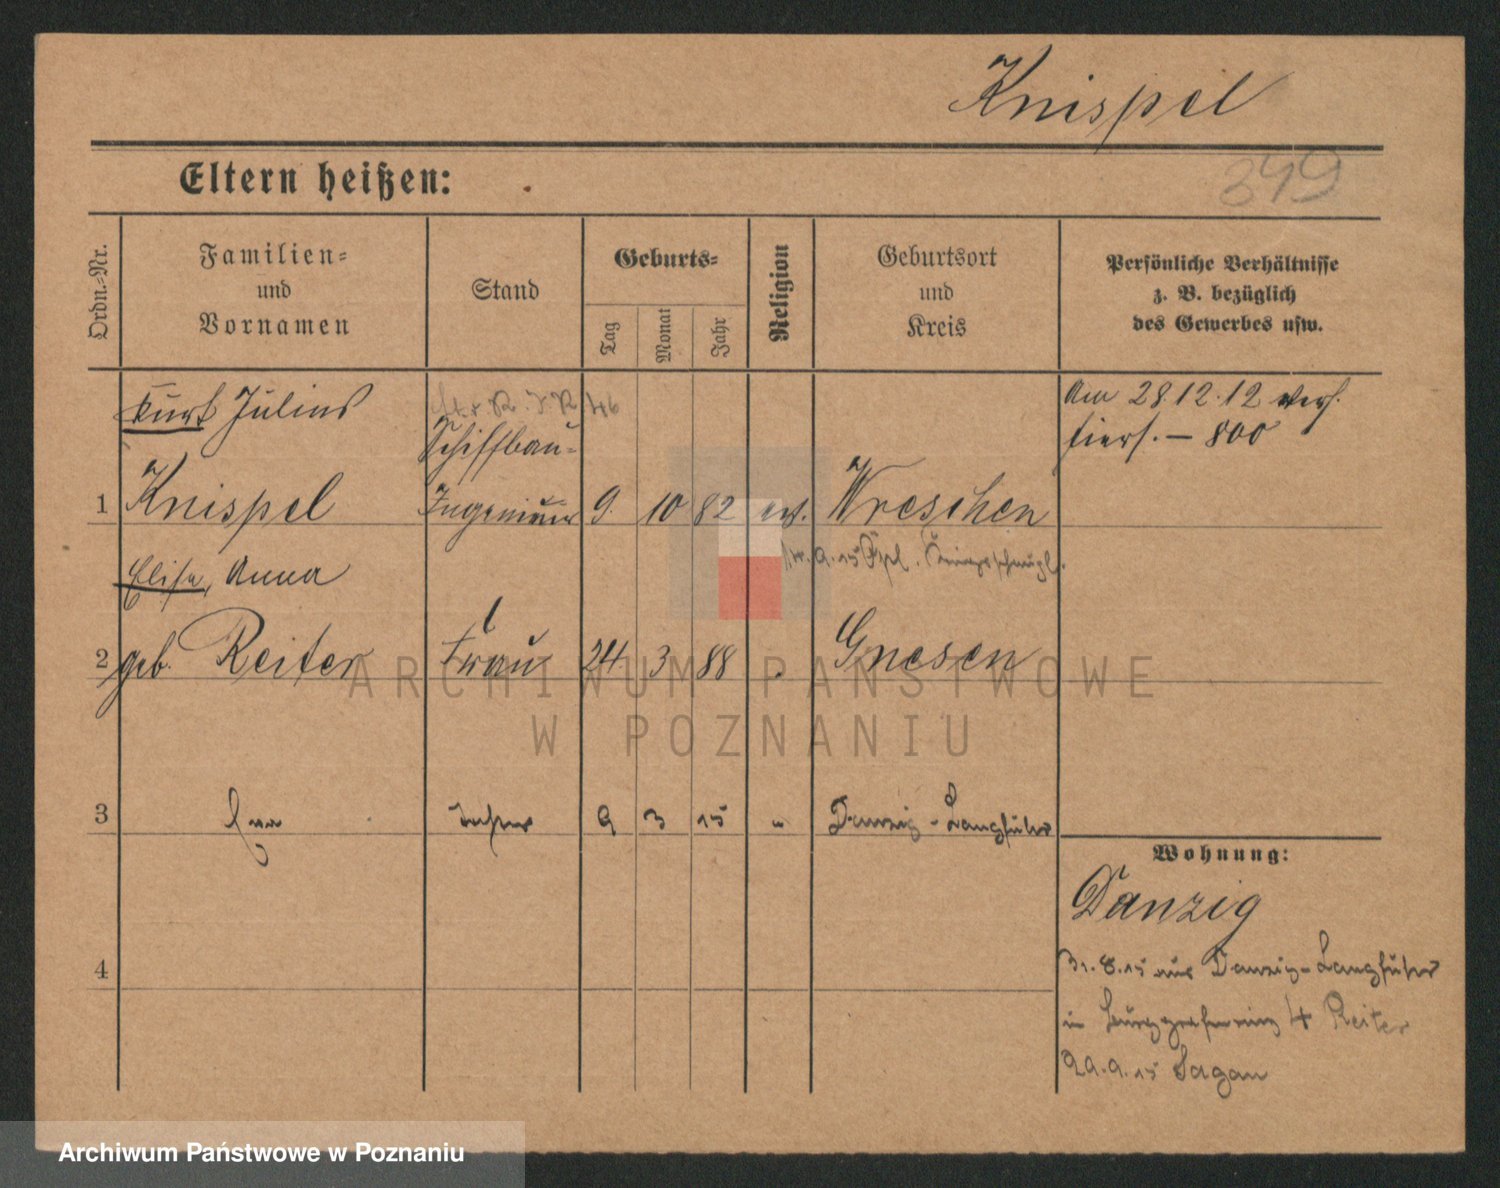 Knispel
349
Eltern heißen:
Ordn.-Nr.
Familien-
und
Vornamen
Stand
Geburts-
Tag
Monat
Jahr
Religion
Geburtsort
und
Kreis
Persönliche Verhältnisse
z. B. bezüglich
des Gewerbes usw.
Kurt Julius
Am 28 12. 12
800
Schiffbau-
1 Knispel Ingenieur 9. 10 82 ev. Wreschen
9. 15
Elise, Anna
2 geb. Reiter Frau 24 3 88 Gnesen
3 Eva Tochter 9 3 15 " Danzig-Langfuhr
Wohnung:
Danzig
31.8.15 aus Danzig-Langfuhr
in 4 Reiter
29.9.15 Sagan
4
ARCHIWUM PAŃSTWOWE
W POZNANIU
Archiwum Państwowe w Poznaniu